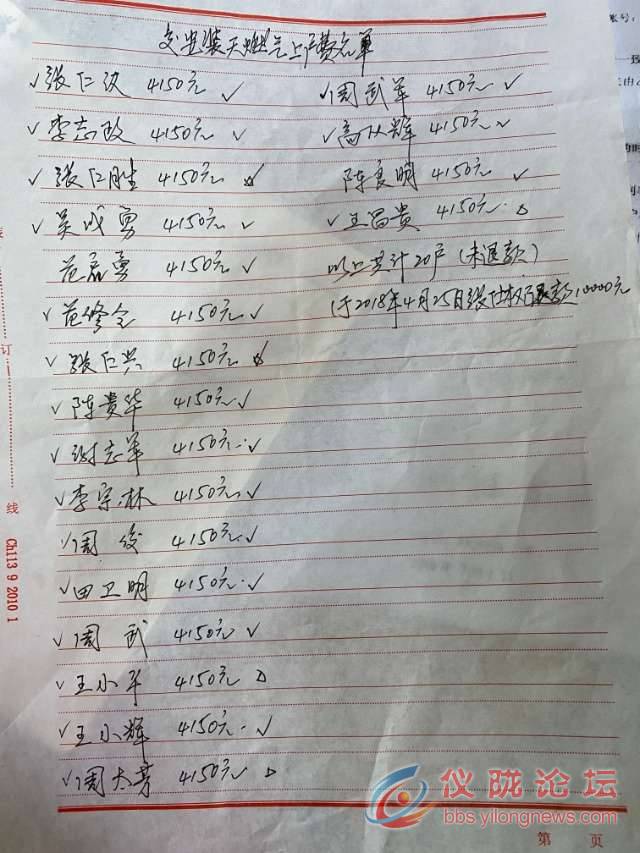 交安装天燃气上户费名单
✓张仁汉 4150元 ✓
✓李志政 4150元 ✓
✓张仁胜 4150元
✓吴成勇 4150元 ✓
范磊勇 4150元 ✓
✓范修全 4150元 ✓
✓张仁兴 4150元
✓陈贵华 4150元 ✓
✓谢志军 4150元 ✓
✓李宗林 4150元 ✓
✓周俊 4150元 ✓
✓田卫明 4150元 ✓
✓周武 4150元 ✓
✓王小平 4150元 △
✓王小辉 4150元 ✓
✓周大芳 4150元 △
✓周武军 4150元 ✓
✓高从辉 4150元 ✓
陈良明 4150元 ✓
✓王昌贵 4150元 △
以上共计20户(未退款)
于2018年4月25日张仕权退款10000元
订
线
Ch113 9 2010 1
账号:
第 页
仪陇论坛
bbs.yilongnews.com